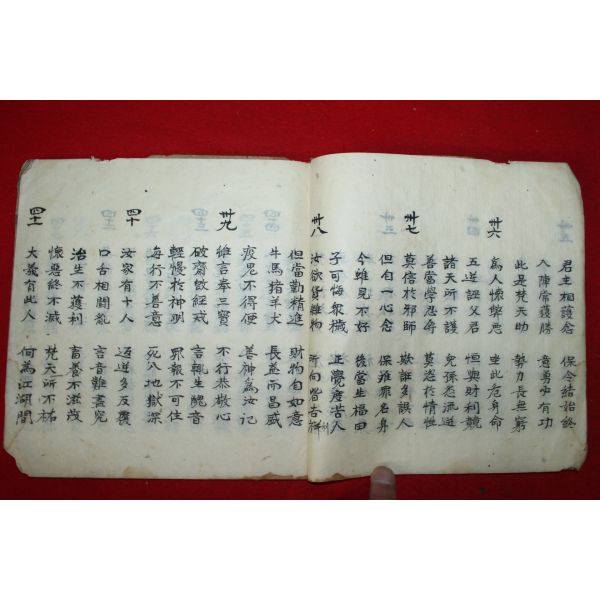 君主相護念 保令結始終
八陣常獲勝 意勇事有功
此是梵天助 勢力長無窮
卅六
為人懷弊惡 坐此危身命
五逆誣父君 但與財利競
諸天所不護 兒孫悉流迸
善當學忍辱 莫恣於情性
卅七
莫信於邪師 欺誑多誤人
但自一心念 保 罪名身
今雖見不好 後當生福田
子可悔衆穢 正覺度苦人
卅八
汝欲貨雜物 所向皆吉祥
但當勤精進 財物自如意
牛馬猪羊犬 長益而昌盛
疫鬼不得便 善神為汝記
卅九
雖言奉三寶 不行恭敬心
破齋飲經戒 言輒生醜音
輕慢於神明 罪報不可住
每行不善意 死入地獄深
四十
汝家有十人 逆多反覆
口舌相鬪亂 言音難盡究
治生不獲利 畜養不滋茂
懷惡終不滅 梵天所不祐
四十一
大義有此人 何為江湖間